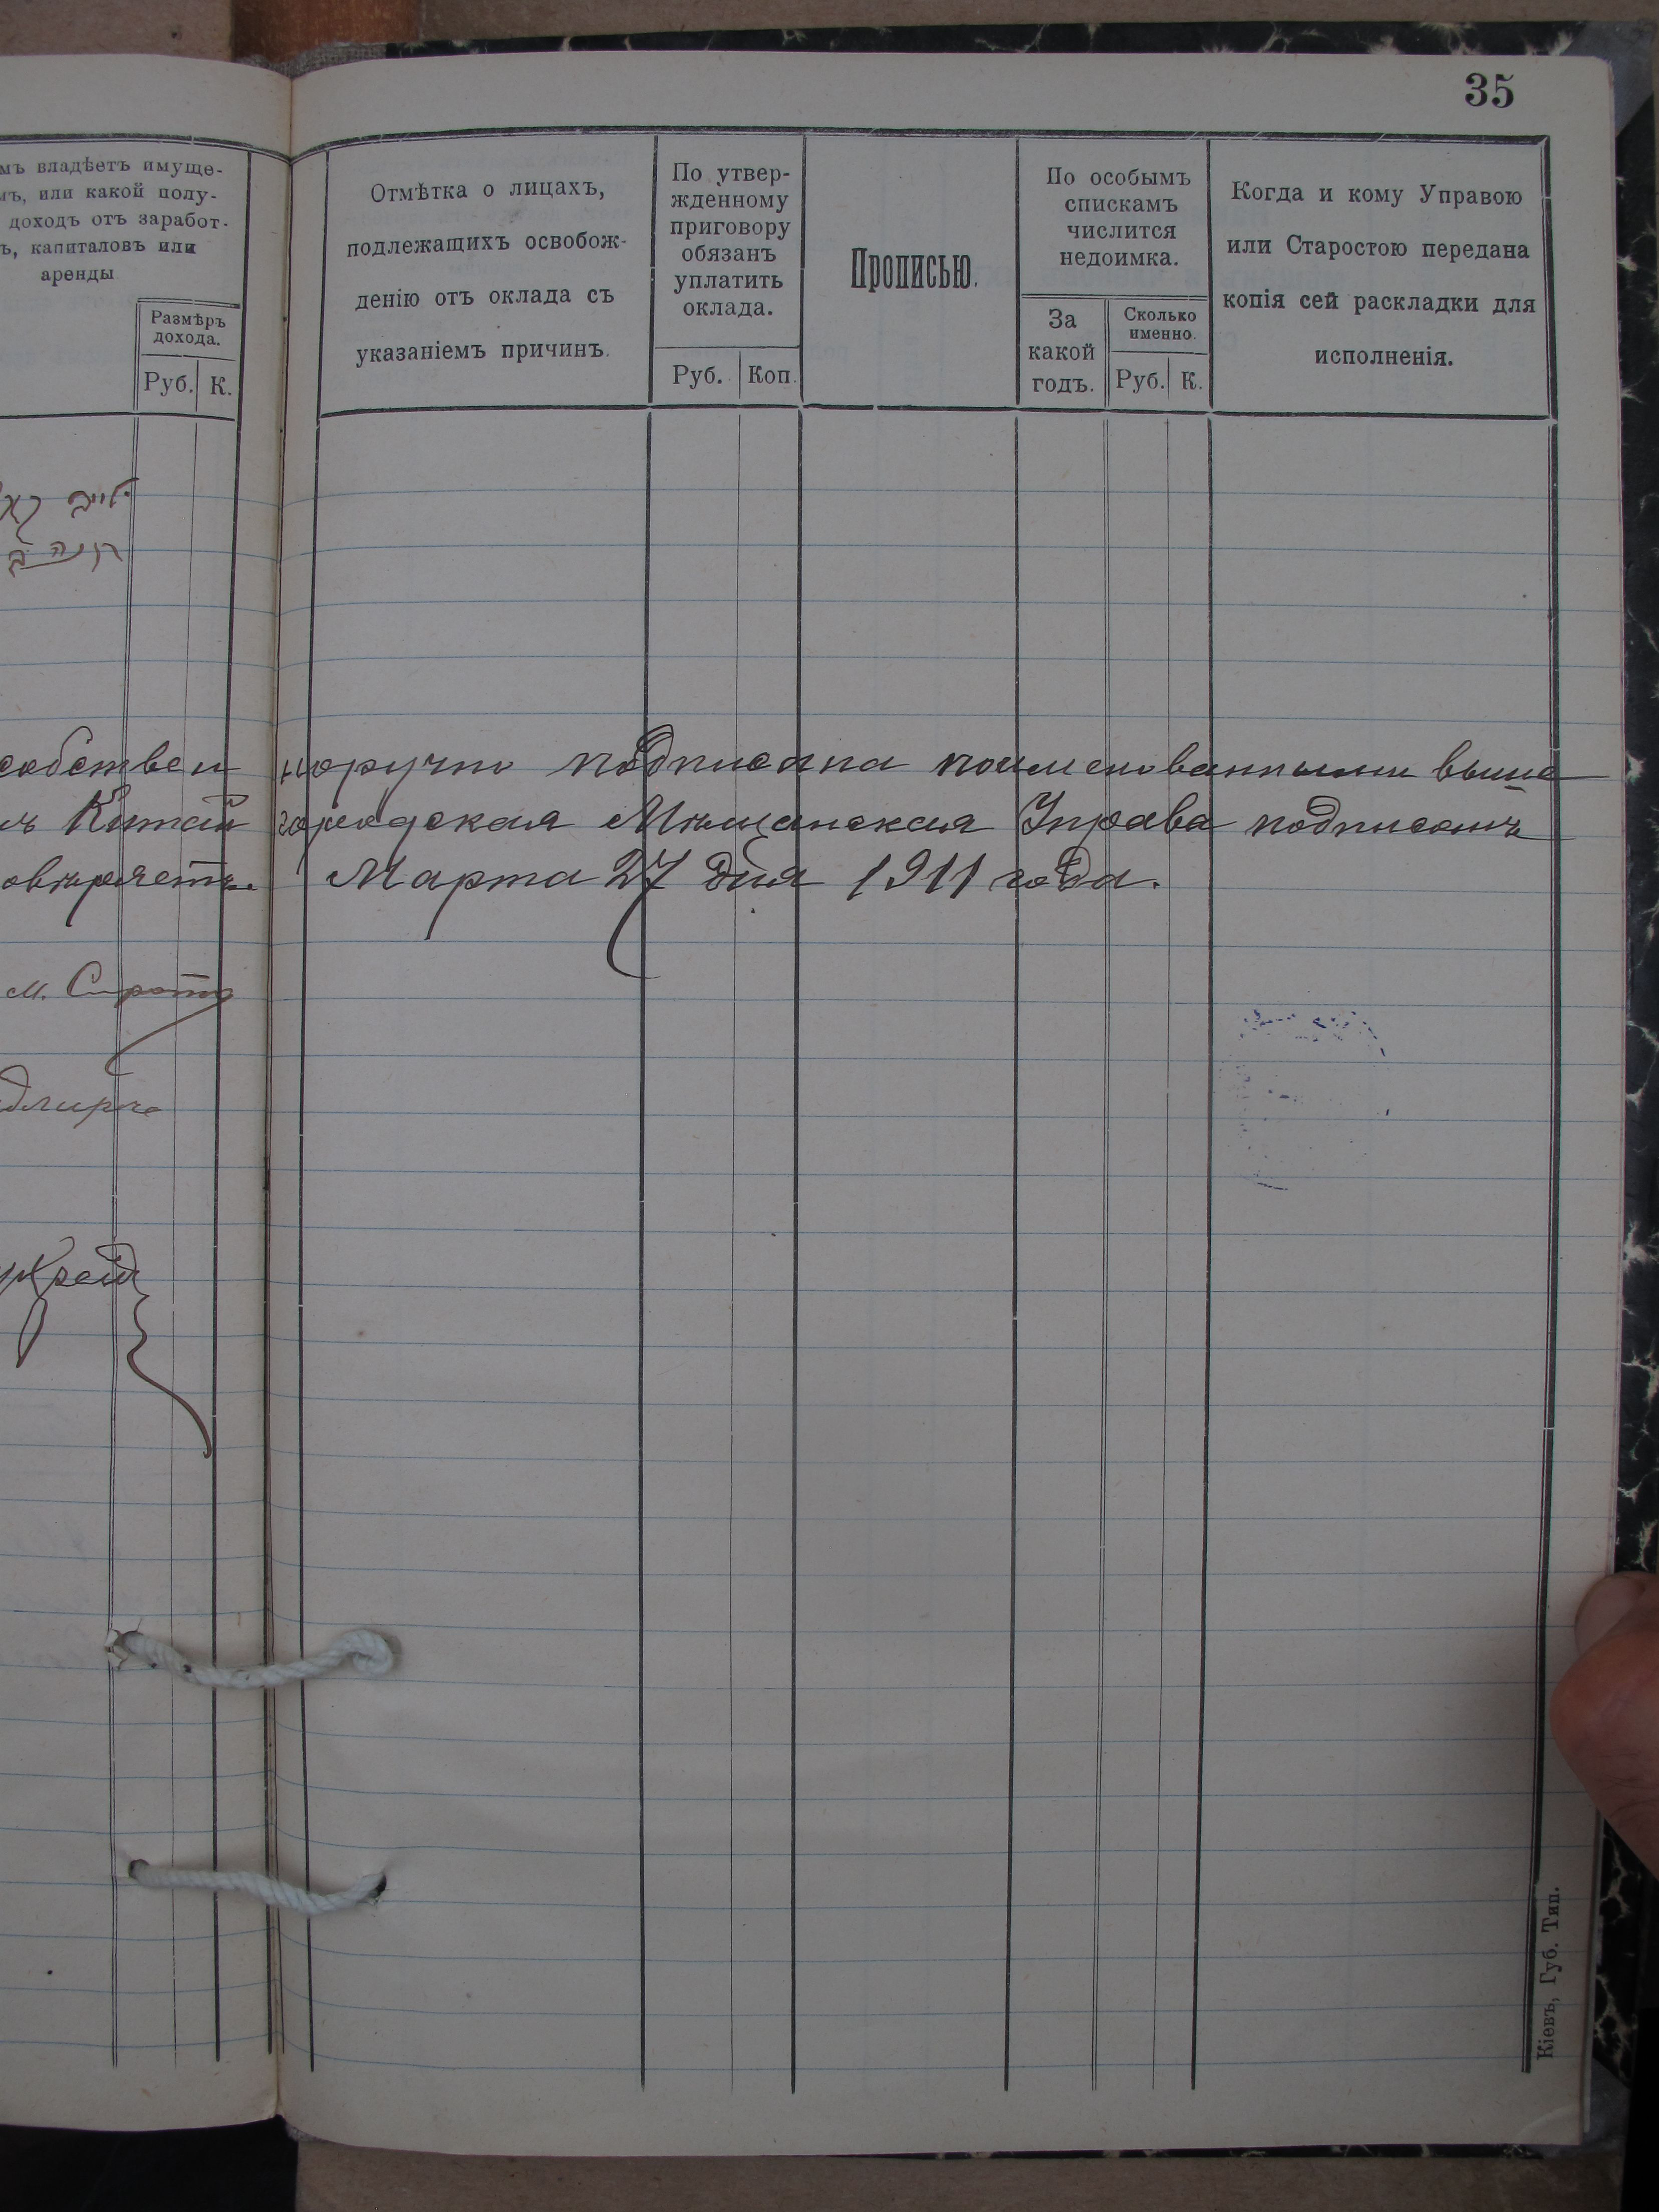 35
мъ владѣетъ имуще-
мъ, или какой полу-
доходъ отъ заработ-
ъ, капиталовъ или
аренды
Размѣръ
дохода.
Руб. К.
Отмѣтка о лицахъ,
подлежащихъ освобож-
денію отъ оклада съ
указаніемъ причинъ.
По утвер-
жденному
приговору
обязанъ
уплатить
оклада.
Руб. Коп.
Прописью.
По особымъ
спискамъ
числится
недоимка.
За
какой
годъ.
Сколько
именно.
Руб. К.
Когда и кому Управою
или Старостою передана
копія сей раскладки для
исполненія.
собственноручно подписана поименованными выше
ъ Китайгородская Мѣщанская Управа подписомъ
овѣряетъ. Марта 27 дня 1911 года.
м. Сирота
Кіевъ, Губ. Тип.